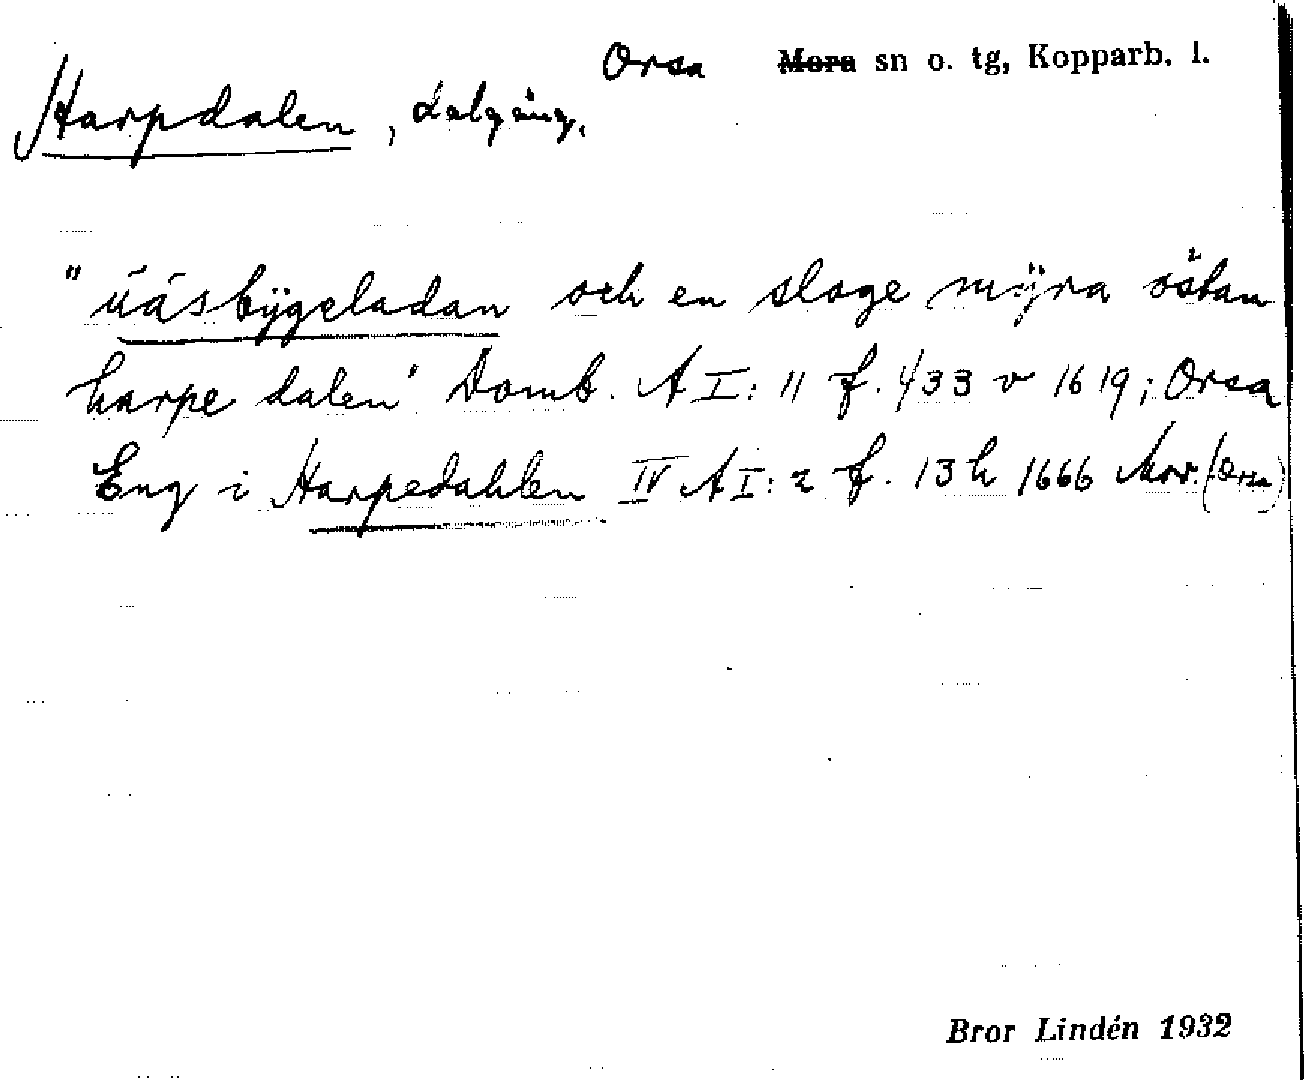 Orsa Mora sn o. tg, Kopparb. l.
Harpdalen, dalgång.
"üåsbÿgeladan och en sloge mÿra östan
harpe dalen" Domb. A I: 11 f. 433 v 1619; Orsa
Eng i Harpedahlen IV A I: 2 f. 13 h 1666 Nov. (Orsa)
Bror Lindén 1932